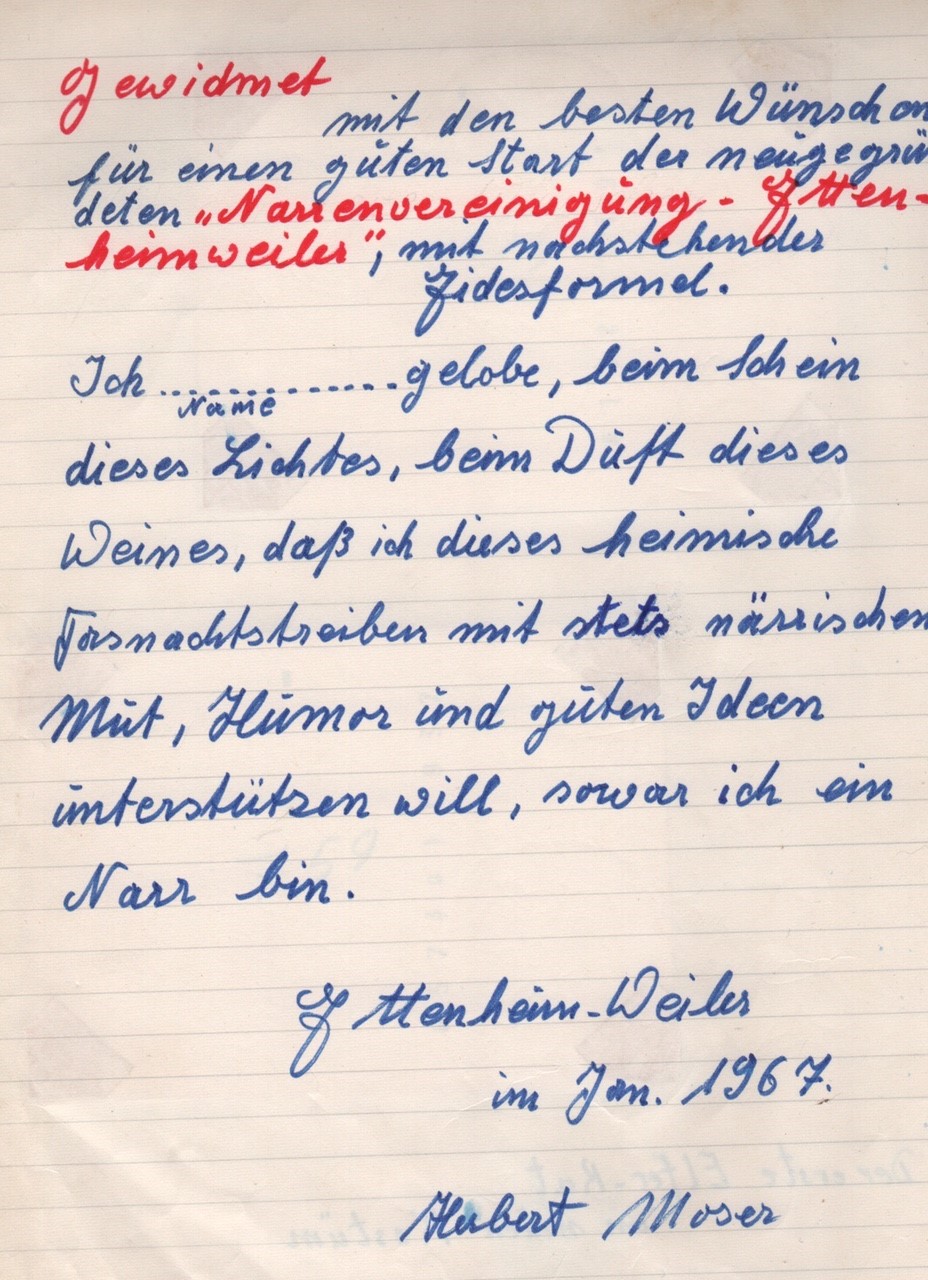 Gewidmet
mit den besten Wünschen
für einen guten Start der neugegrün
deten „Narrenvereinigung - Ettenheimweiler", mit nachstehender
Eidesformel.
Ich ............. gelobe, beim Schein
Name
dieses Lichtes, beim Duft dieses
Weines, daß ich dieses heimische
Fasnachtstreiben mit stets närrischen
Mut, Humor und guten Ideen
unterstützen will, sowar ich ein
Narr bin.
Ettenheim-Weiler
im Jan. 1967.
Herbert Moser